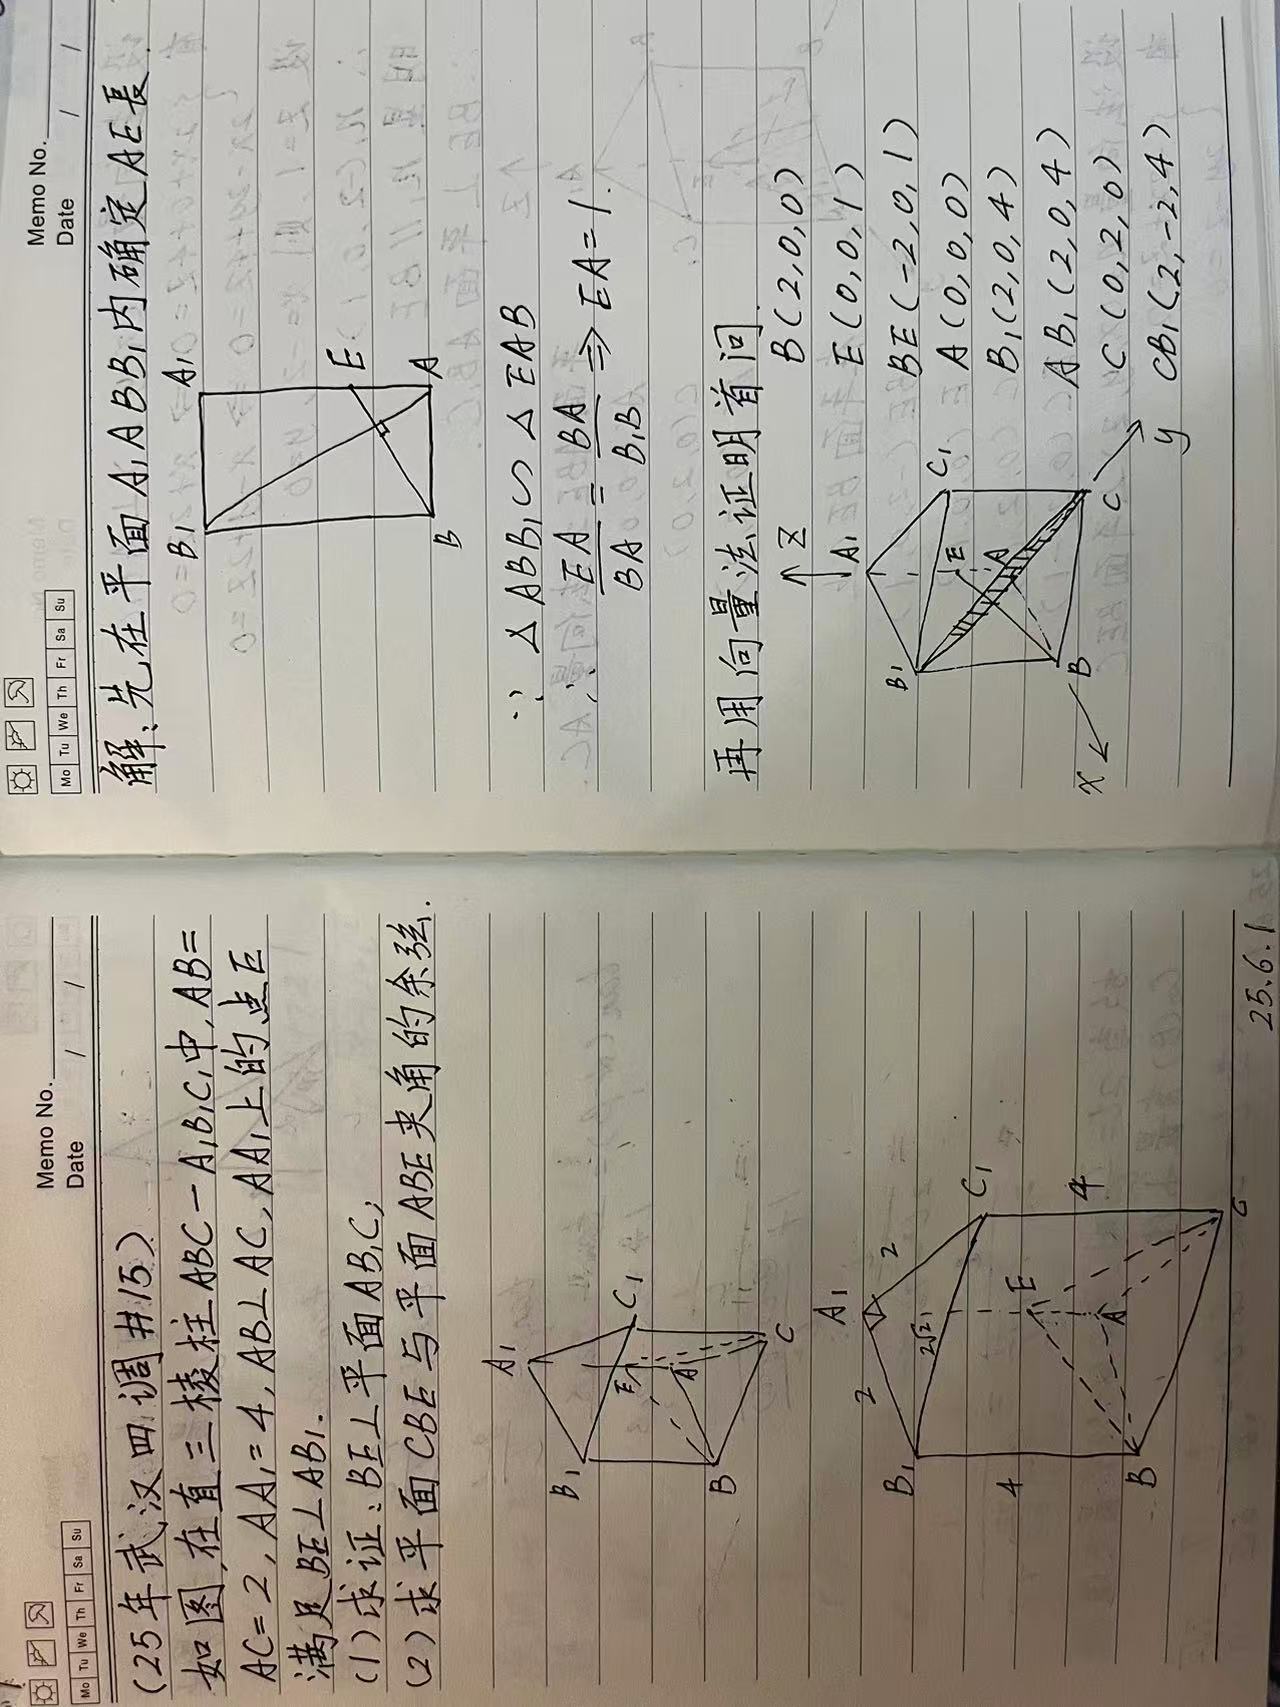 Memo No.
Date / /
Mo Tu We Th Fr Sa Su
(25年武汉四调#15)
如图,在直三棱柱ABC-A₁B₁C₁中,AB=
AC=2,AA₁=4,AB⊥AC,AA₁上的点E
满足BE⊥AB₁.
(1)求证:BE⊥平面AB₁C;
(2)求平面CBE与平面ABE夹角的余弦.
A₁
B₁
C₁
E
A
B
C
A₁
2
2
B₁
2√2
C₁
4
E
4
A
B
C
25.6.1
Memo No.
Date / /
Mo Tu We Th Fr Sa Su
解:先在平面A₁ABB₁内确定AE長
B₁
A₁
E
B
A
∵ △ABB₁∽△EAB
∴ EA/BA=BA/B₁B⇒EA=1.
再用向量法证明首问
Z
B(2,0,0)
A₁
E(0,0,1)
B₁
C₁
BE(-2,0,1)
E
A(0,0,0)
A
B₁(2,0,4)
B
AB₁(2,0,4)
C
C(0,2,0)
x
y
CB₁(2,-2,4)